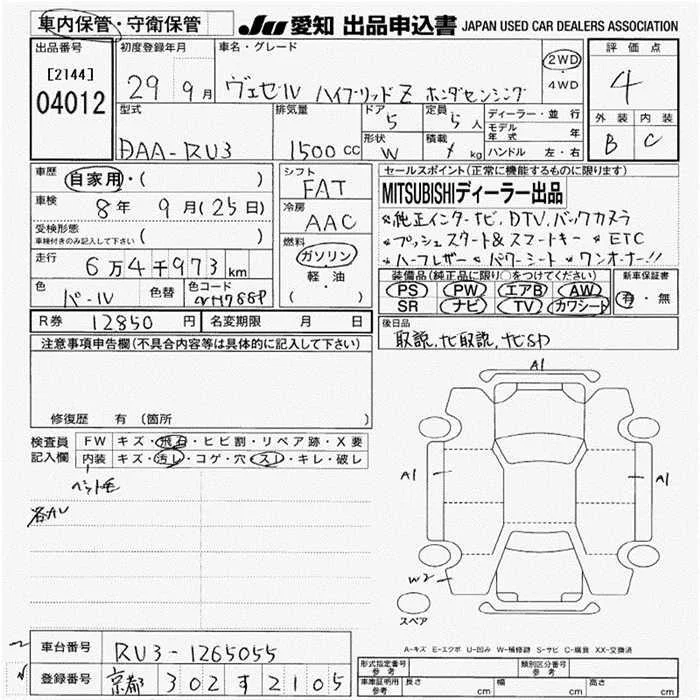 車内保管・守衛保管
JU 愛知 出品申込書 JAPAN USED CAR DEALERS ASSOCIATION
出品番号 初度登録年月 車名・グレード 評価点
[2144]
04012
29 9月 ヴェゼル ハイブリッドZ ホンダセンシング 2WD・4WD 4
型式 排気量 ドア 5 定員 5人 ディーラー・並行 外装 内装
DAA-RU3 1500cc 形状 W 積載 kg モデル年式 年 B C
ハンドル 左・右
車歴 自家用・( )
シフト FAT
セールスポイント(正常に機能するものに限ります)
MITSUBISHIディーラー出品
車検 8年 9月(25日)
冷房 AAC
*純正インターナビ、DTV、バックカメラ
受検形態 車検付きのみ記入して下さい ( )
*プッシュスタート&スマートキー *ETC
走行 6万4千973km
燃料 ガソリン・軽・油 ( )
*ハーフレザー *パワーシート *ワンオーナー!!
色 パール 色替 色コード NH788P
装備品(純正品に限り○をつけてください) 新車保証書
PS PW エアB AW 有・無
SR ナビ TV カワシート
R券 12850円 名変期限 月 日
後日品
取説、ナビ取説、ナビSD
注意事項申告欄(不具合内容等は具体的に記入して下さい)
修復歴 有 (箇所 )
検査員記入欄 FW キズ・飛石・ヒビ割・リペア跡・X要
内装 キズ・汚レ・コゲ・穴・スレ・キレ・破レ
ペット毛
A1
A1
A1
W2
スペア
A-キズ E-エクボ U-凹み W-補修跡 S-サビ C-腐食 XX-交換済
車台番号 RU3-1265055
登録番号 京都 302 す 2105
形式指定番号 参考 類別区分番号 参考
車庫証明用 参考 長さ cm 幅 cm 高さ cm